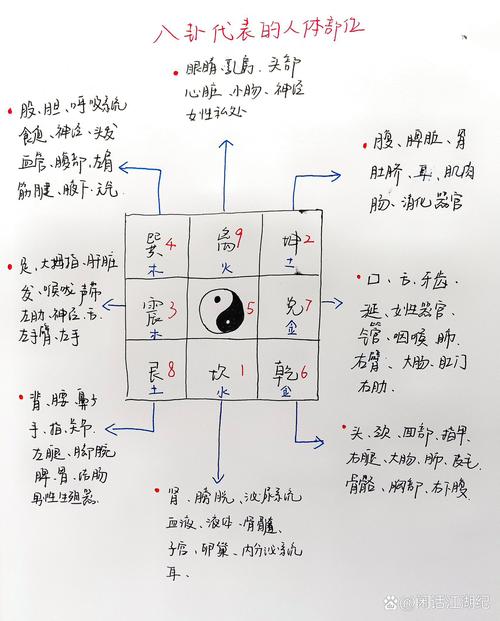 八卦代表的人体部位
眼睛、乳房、头部
心脏、小肠、神经
女性私处
股、胆、呼吸系统
食道、神经、头发
血管、腹部、左肩
筋腱、腋下、元气
腹、脾脏、胃
肚脐、耳、肌肉
肠、消化器官
巽 4
木
离 9
火
坤 2
土
足、大拇指、肝脏
发、喉咙、声带
左肋、神经、舌
左手臂、左手
震 3
木
5
兑 7
金
口、舌、牙齿
涎、女性器官
气管、咽喉、肺
右臂、大肠、肛门
右肋.
艮 8
土
坎 1
水
乾 6
金
背、腰、鼻子
手、指、关节
左腿、脚
脾、胃、肠
男性生殖器
头、颈、面部、指甲
右腿、大肠、肺、皮毛
骨骼、胸部、右下腹
肾、膀胱、泌尿系统
血液、液体、骨髓、
子宫、卵巢、内分泌系统
耳.
闲话江湖纪